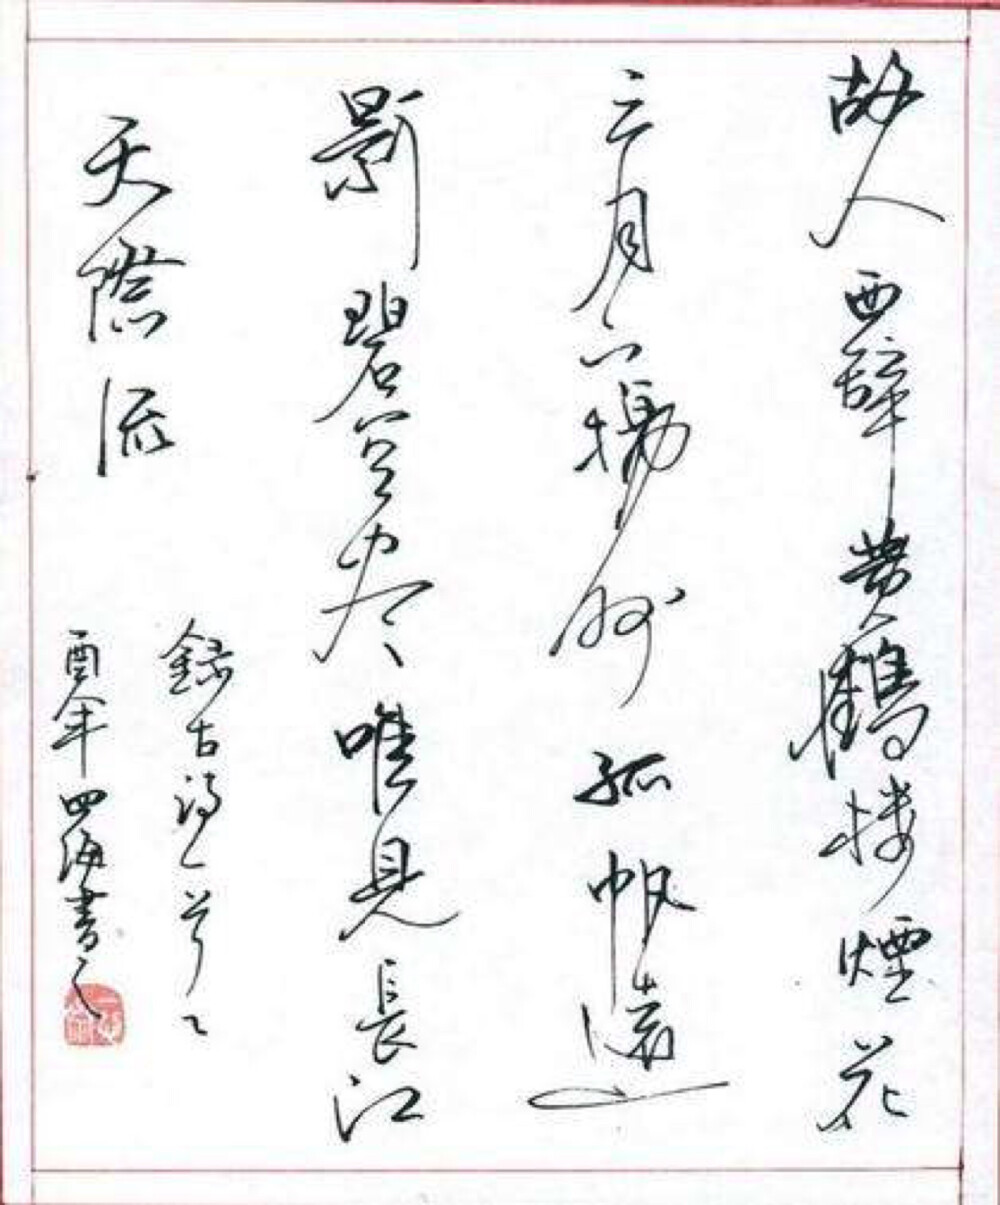 故人西辞黄鶴楼煙花
三月下揚州孤帆遠
影碧空尽唯見長江
天際流
録古詩一首乙
酉年四海書之